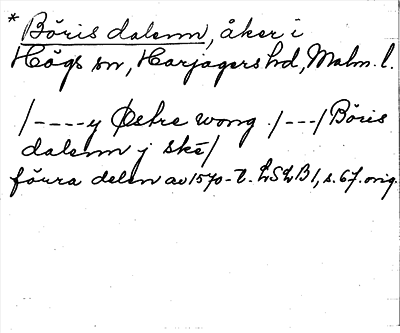 * Böris dalenn, åker i
Högs sn, Harjagers hd, Malm. l.
/----y Østre wong /---/ Böris
dalenn j skē/
förra delen av 1570-t. LSLB1, s. 67. orig.